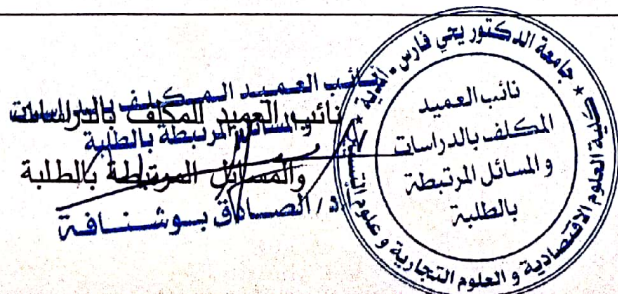 نائب العميد المكلف بالدراسات
والمسائل المرتبطة بالطلبة
نائب العميد المكلف بالدراسات
والمسائل المرتبطة بالطلبة
د/ الصادق بوشنافة
جامعة الدكتور يحي فارس - المدية
كلية العلوم الاقتصادية و العلوم التجارية و علوم التسيير
نائب العميد
المكلف بالدراسات
و المسائل المرتبطة
بالطلبة